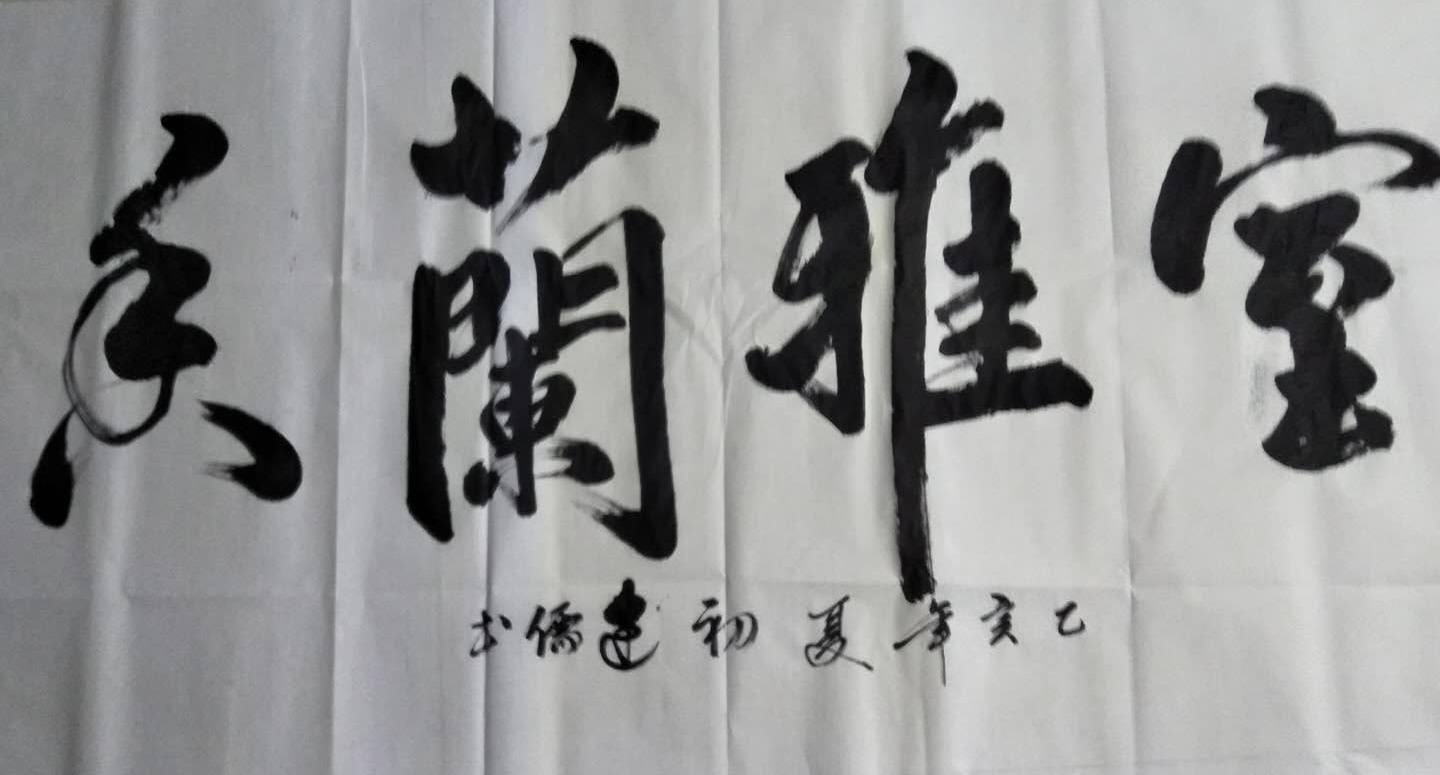 室雅蘭香
乙亥年夏初建儒书